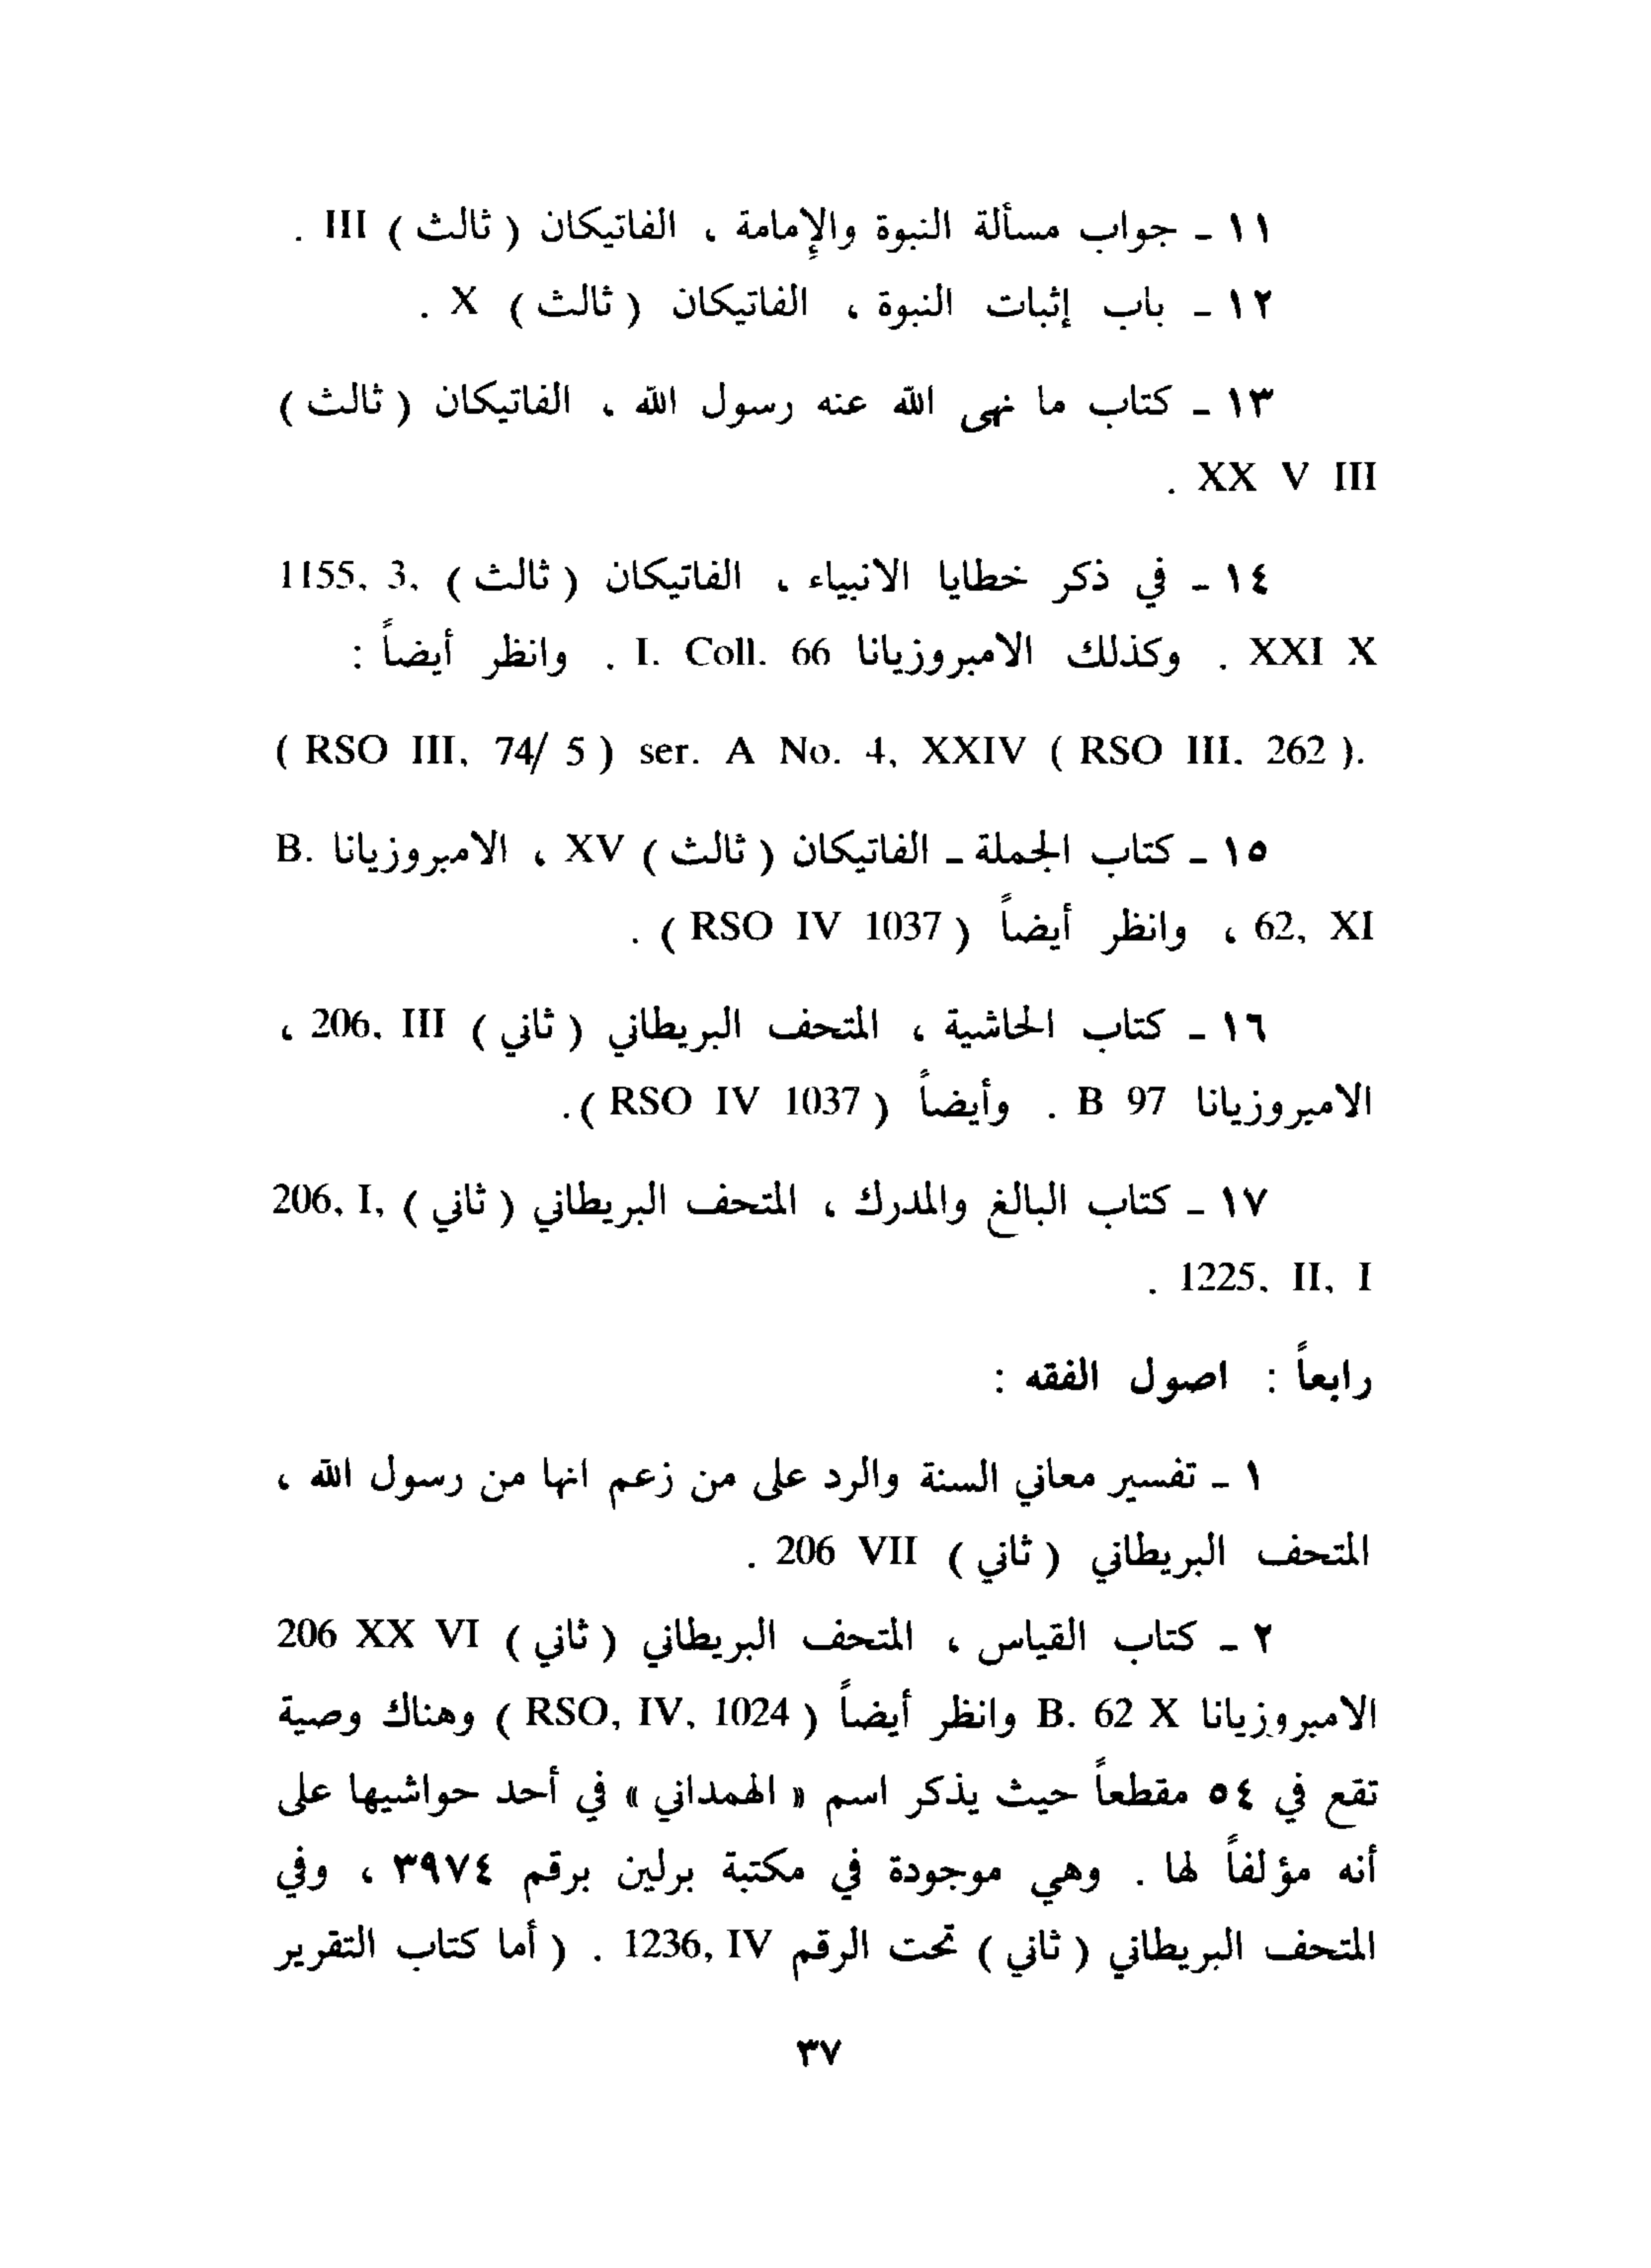 ١١ - جواب مسألة النبوة والإمامة ، الفاتيكان ( ثالث ) III .
١٢ - باب إثبات النبوة ، الفاتيكان ( ثالث ) X .
١٣ - كتاب ما نهى الله عنه رسول الله ، الفاتيكان ( ثالث )
XX V III .
١٤ - في ذكر خطايا الانبياء ، الفاتيكان ( ثالث ) 1155, 3,
XXI X . وكذلك الامبروزيانا I. Coll. 66 . وانظر أيضاً :
( RSO III, 74/ 5 ) ser. A No. 4, XXIV ( RSO III. 262 ).
١٥ - كتاب الجملة - الفاتيكان ( ثالث ) XV ، الامبروزيانا B.
62, XI ، وانظر أيضاً ( RSO IV 1037 ) .
١٦ - كتاب الحاشية ، المتحف البريطاني ( ثاني ) 206, III ،
الاميروزيانا B 97 . وأيضاً ( RSO IV 1037 ).
١٧ - كتاب البالغ والمدرك ، المتحف البريطاني ( ثاني ) 206, I,
1225, II, I .
رابعاً : اصول الفقه :
١ - تفسير معاني السنة والرد على من زعم انها من رسول الله ،
المتحف البريطاني ( ثاني ) 206 VII .
٢ - كتاب القياس ، المتحف البريطاني ( ثاني ) 206 XX VI
الامبروزيانا B. 62 X وانظر أيضاً ( RSO, IV, 1024 ) وهناك وصية
تقع في ٥٤ مقطعاً حيث يذكر اسم « الهمداني » في أحد حواشيها على
أنه مؤلفاً لها . وهي موجودة في مكتبة برلين برقم ٣٩٧٤ ، وفي
المتحف البريطاني ( ثاني ) تحت الرقم 1236, IV . ( أما كتاب التقرير
٣٧